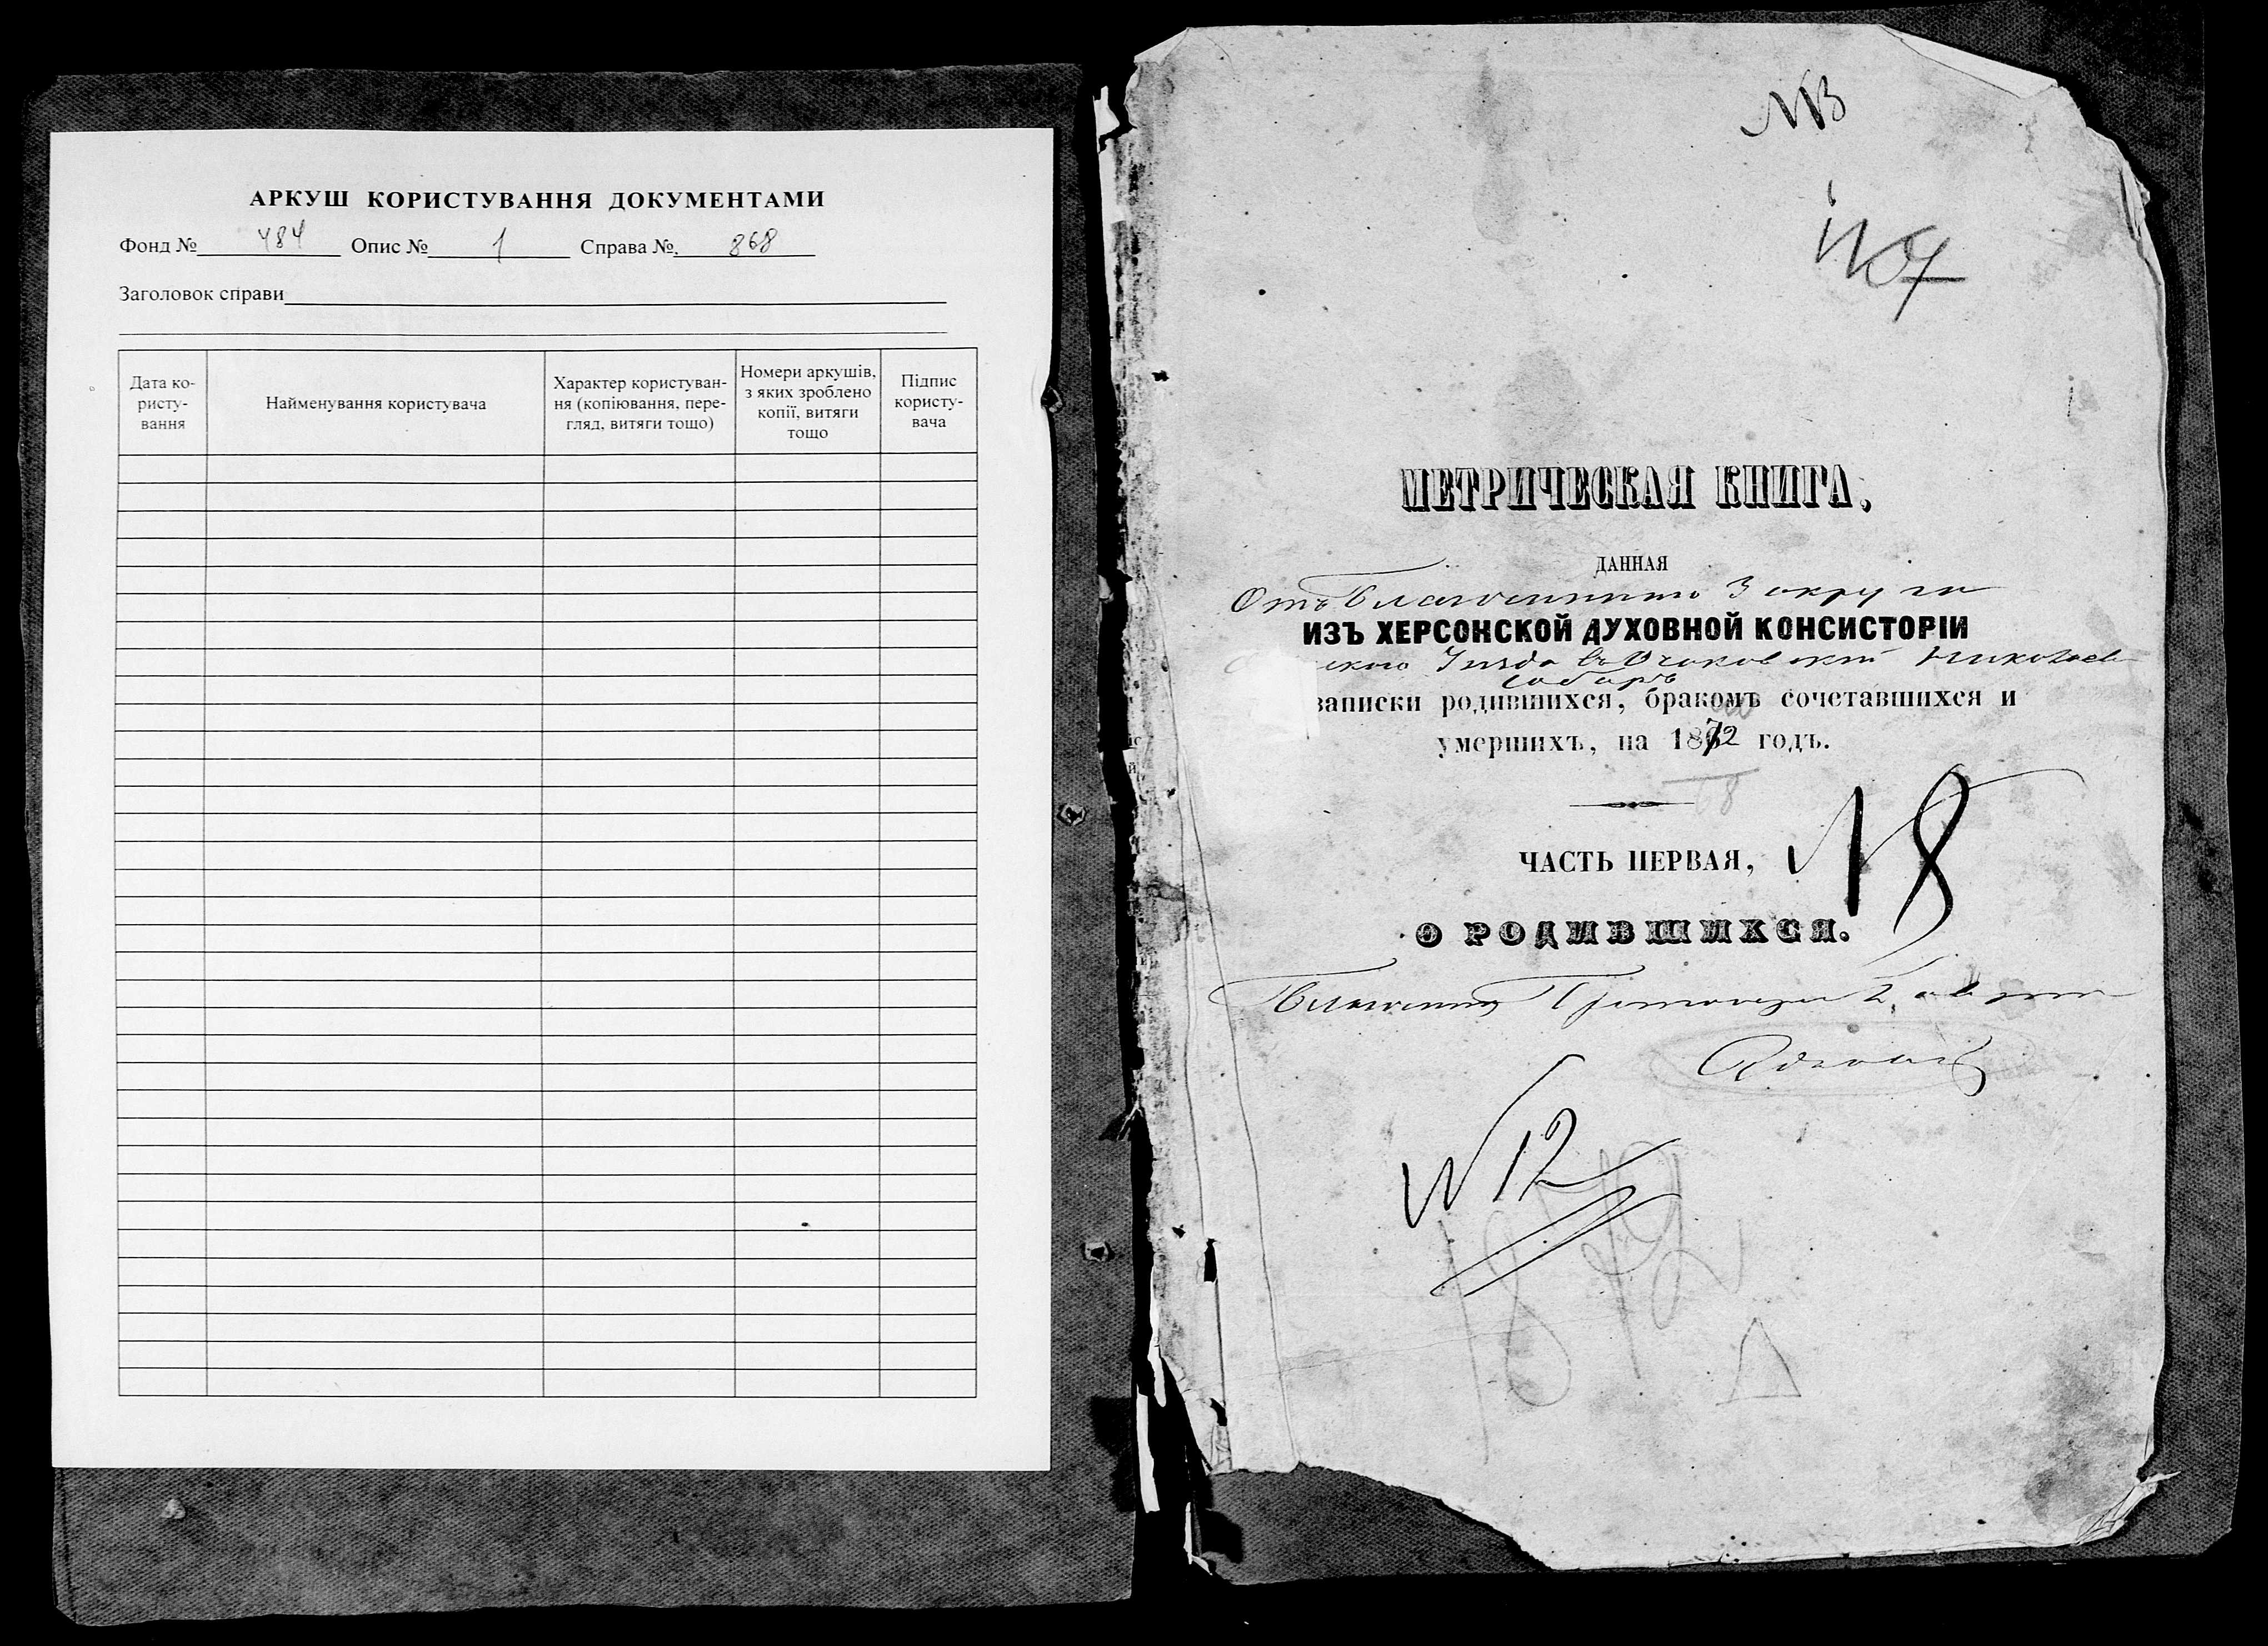 АРКУШ КОРИСТУВАННЯ ДОКУМЕНТАМИ
Фонд № 484 Опис № 1 Справа № 868
Заголовок справи
Дата ко-
ристу-
вання
Найменування користувача
Характер користуван-
ня (копіювання, пере-
гляд, витяги тощо)
Номери аркушів,
з яких зроблено
копії, витяги
тощо
Підпис
користу-
вача
МЕТРИЧЕСКАЯ КНИГА,
ДАННАЯ
Отъ Благочиннаго 3 округа
ИЗЪ ХЕРСОНСКОЙ ДУХОВНОЙ КОНСИСТОРІИ
скаго Уезда въ Очаковскій Николаев
соборъ
записки родившихся, бракомъ сочетавшихся и
умершихъ, на 1872 годъ.
68
ЧАСТЬ ПЕРВАЯ,
N 8
О РОДИВШИХСЯ.
Благочинный Протоиерей
N 12
1872